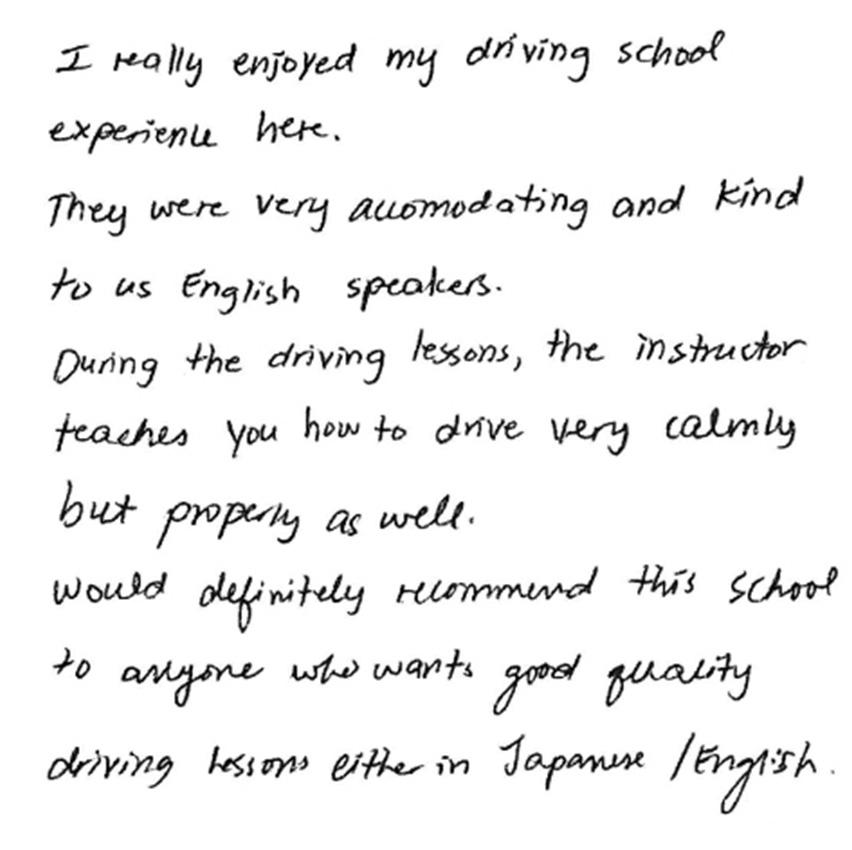 I really enjoyed my driving school
experience here.
They were very accomodating and kind
to us English speakers.
During the driving lessons, the instructor
teaches you how to drive very calmly
but properly as well.
Would definitely recommend this school
to anyone who wants good quality
driving lessons either in Japanese /English.